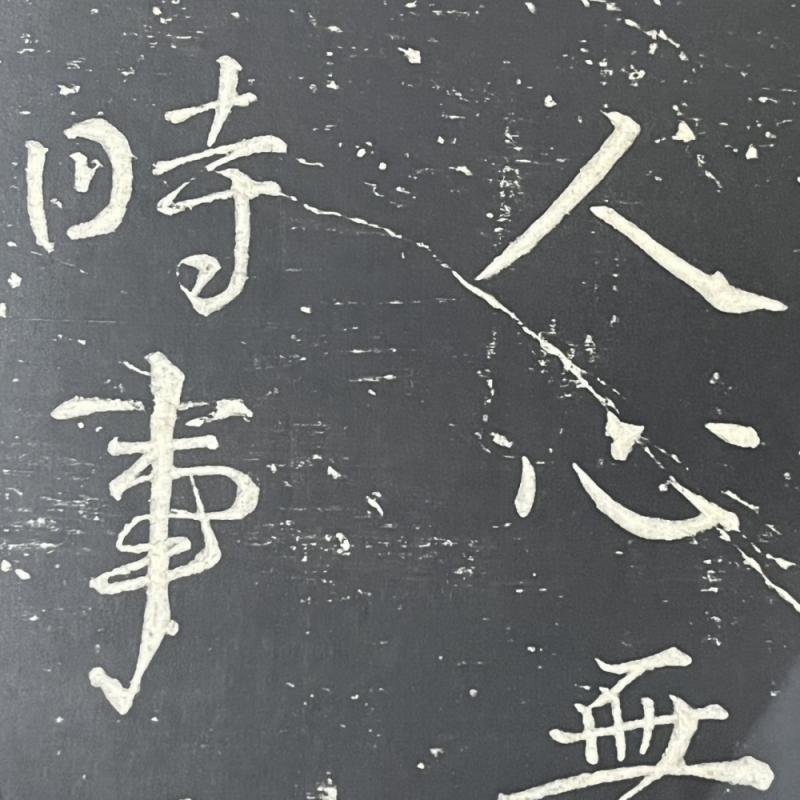 人心無
時事